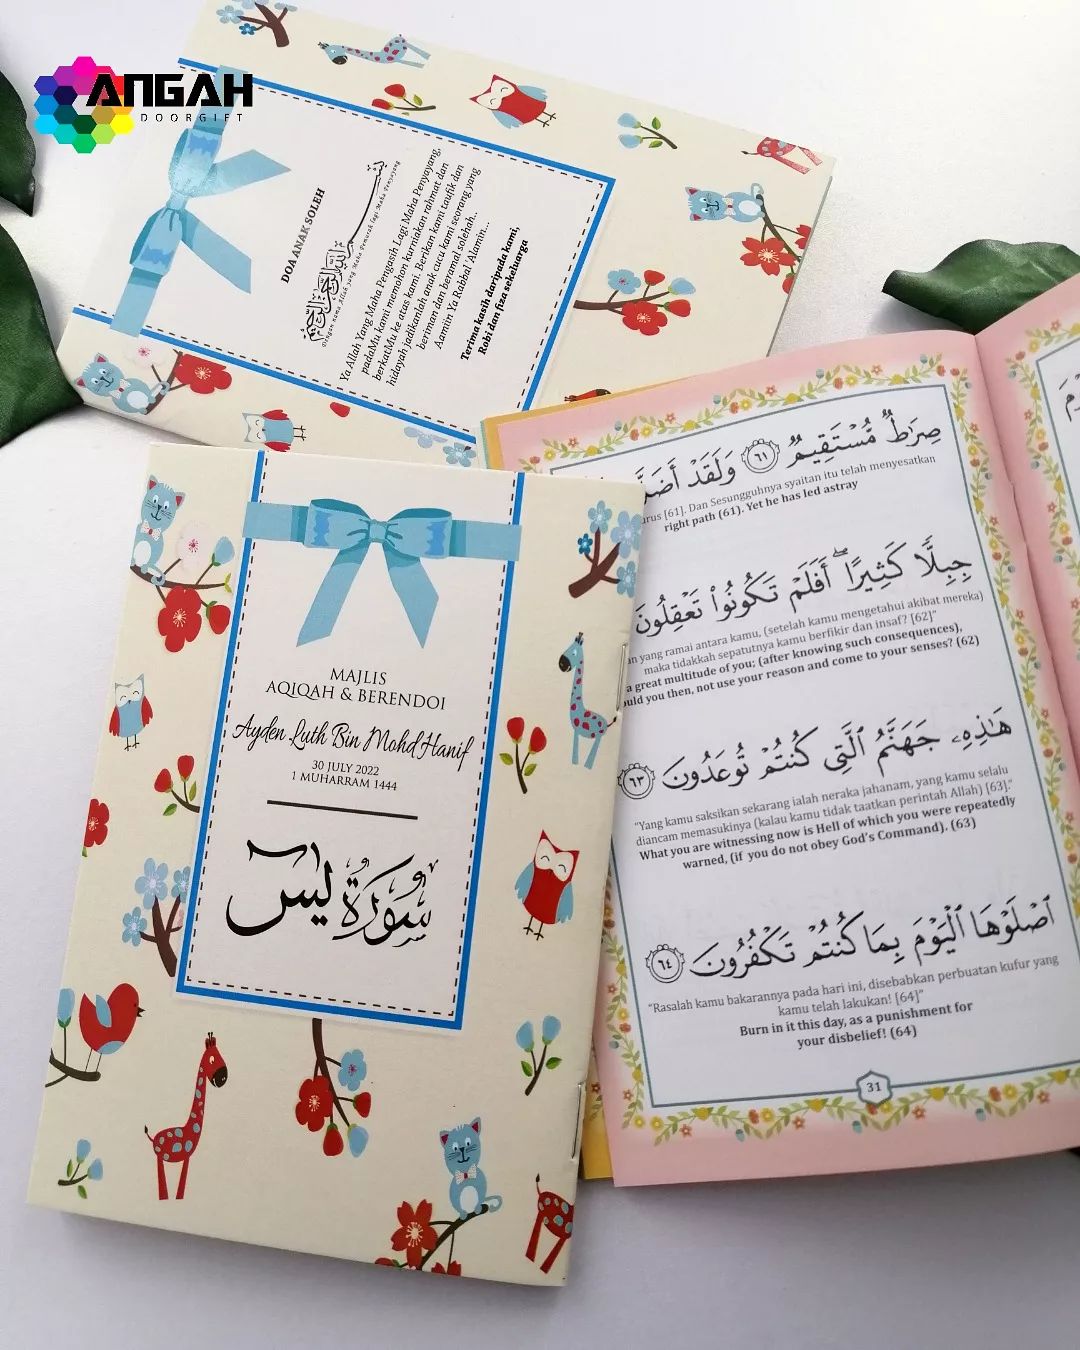 ANGAH
DOORGIFT
DOA ANAK SOLEH
بسم الله الرحمن الرحيم
Dengan nama Allah yang Maha Pemurah lagi Maha Penyayang
Ya Allah Yang Maha Pengasih Lagi Maha Penyayang,
padaMu kami memohon kurniakan rahmat dan
berkatMu ke atas kami. Berikan kami taufik dan
hidayah jadikanlah anak cucu kami seorang yang
beriman dan beramal solehah...
Aamiin Ya Rabbal 'Alamin...
Terima kasih daripada kami,
Robi dan fiza sekeluarga
MAJLIS
AQIQAH & BERENDOI
Ayden Luth Bin Mohd Hanif
30 JULY 2022
1 MUHARRAM 1444
سورة يس
صِرَٰطٌ مُّسْتَقِيمٌ ٦١ وَلَقَدْ أَضَلَّ
urus [61]. Dan Sesungguhnya syaitan itu telah menyesatkan
right path (61). Yet he has led astray
جِبِلًّا كَثِيرًا ۖ أَفَلَمْ تَكُونُوا۟ تَعْقِلُونَ
an yang ramai antara kamu, (setelah kamu mengetahui akibat mereka)
maka tidakkah sepatutnya kamu berfikir dan insaf? [62]"
a great multitude of you; (after knowing such consequences),
ould you then, not use your reason and come to your senses? (62)
هَٰذِهِۦ جَهَنَّمُ ٱلَّتِى كُنتُمْ تُوعَدُونَ ٦٣
"Yang kamu saksikan sekarang ialah neraka jahanam, yang kamu selalu
diancam memasukinya (kalau kamu tidak taatkan perintah Allah) [63]."
What you are witnessing now is Hell of which you were repeatedly
warned, (if you do not obey God's Command). (63)
ٱصْلَوْهَا ٱلْيَوْمَ بِمَا كُنتُمْ تَكْفُرُونَ ٦٤
"Rasalah kamu bakarannya pada hari ini, disebabkan perbuatan kufur yang
kamu telah lakukan! [64]"
Burn in it this day, as a punishment for
your disbelief! (64)
31